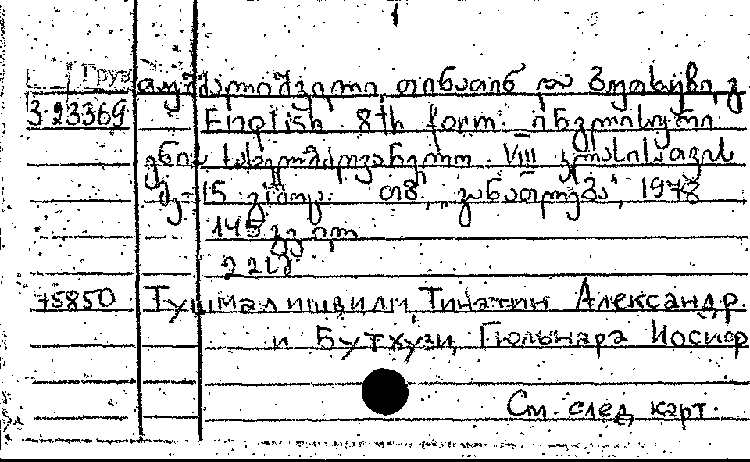 Груз
თუშმალიშვილი, თინათინ და ბუთხუზი, გ
3.23369 English 8th form: ინგლისური
ენის სახელმძღვანელო VIII კლასისათვის
მე-15 გამოც. თბ., „განათლება", 1978
145 გვ.
75850 Тушмалишвили, Тинатин Александр.
и Бутхузи, Гюльнара Иосиф
См. след. карт.